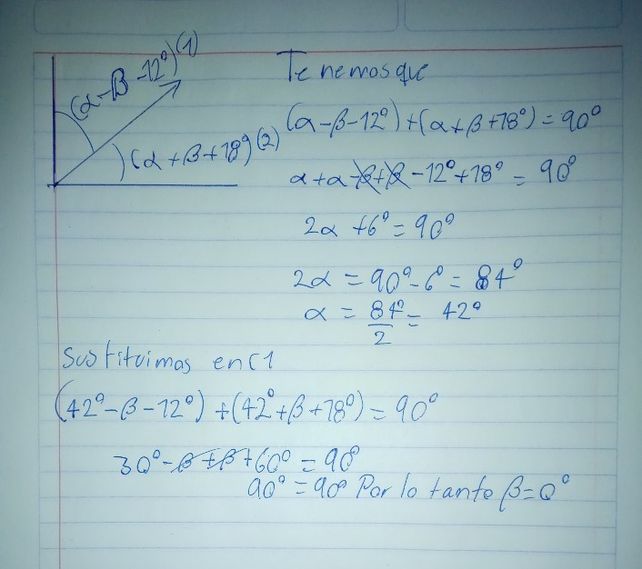 (α-β-12°)(1)
)(α+β+18°)(2)
Tenemos que
(α-β-12°)+(α+β+18°)=90°
α+α-β+β-12°+18°=90°
2α+6°=90°
2α=90°-6°=84°
α=84°/2=42°
Sustituimos en (1
(42°-β-12°)+(42°+β+18°)=90°
30°-β+β+60°=90°
90°=90° Por lo tanto β=0°